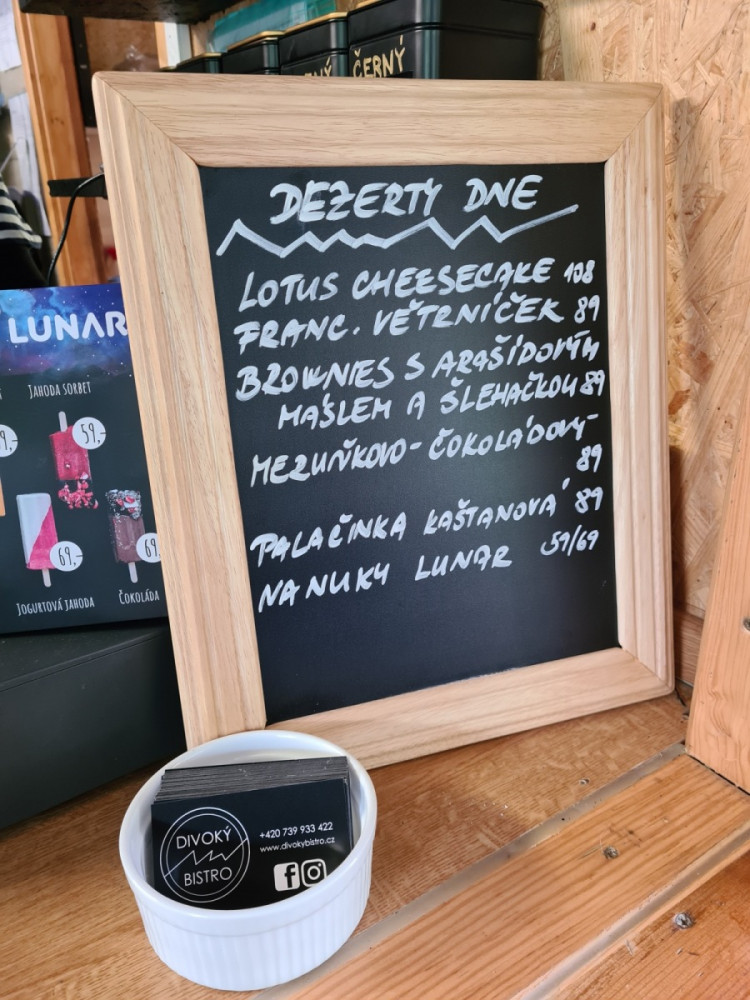 ČERNÝ
DEZERTY DNE
LOTUS CHEESECAKE 108
FRANC. VĚTRNÍČEK 89
BROWNIES S ARAŠÍDOVÝM
MÁSLEM A ŠLEHAČKOU 89
MERUŇKOVO-ČOKOLÁDOVÝ
89
PALAČINKA KAŠTANOVÁ 89
NANUKY LUNAR 59/69
LUNAR
JAHODA SORBET
59,-
69,-
69
JOGURTOVÁ JAHODA
ČOKOLÁDA
DIVOKÝ
BISTRO
+420 739 933 422
www.divokybistro.cz